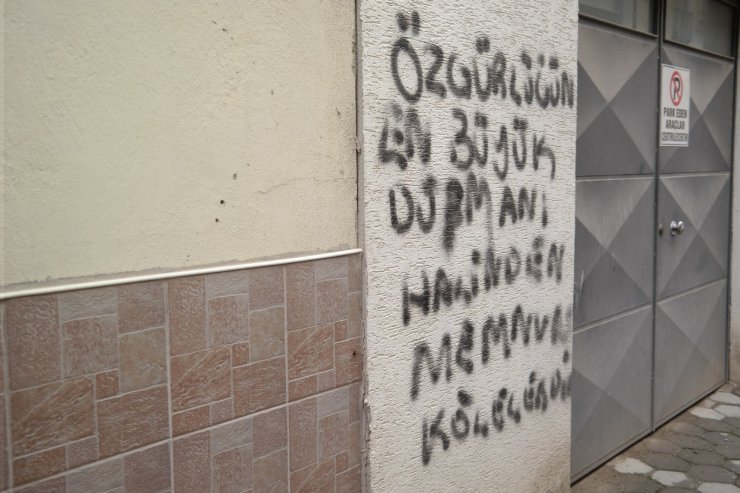 ÖZGÜRLÜĞÜN
EN BÜYÜK
DÜŞMANI
HALİNDEN
MEMNUN
KÖLELERDİR
PARK EDEN
ARAÇLAR
ÇEKTİRİLECEKTİR